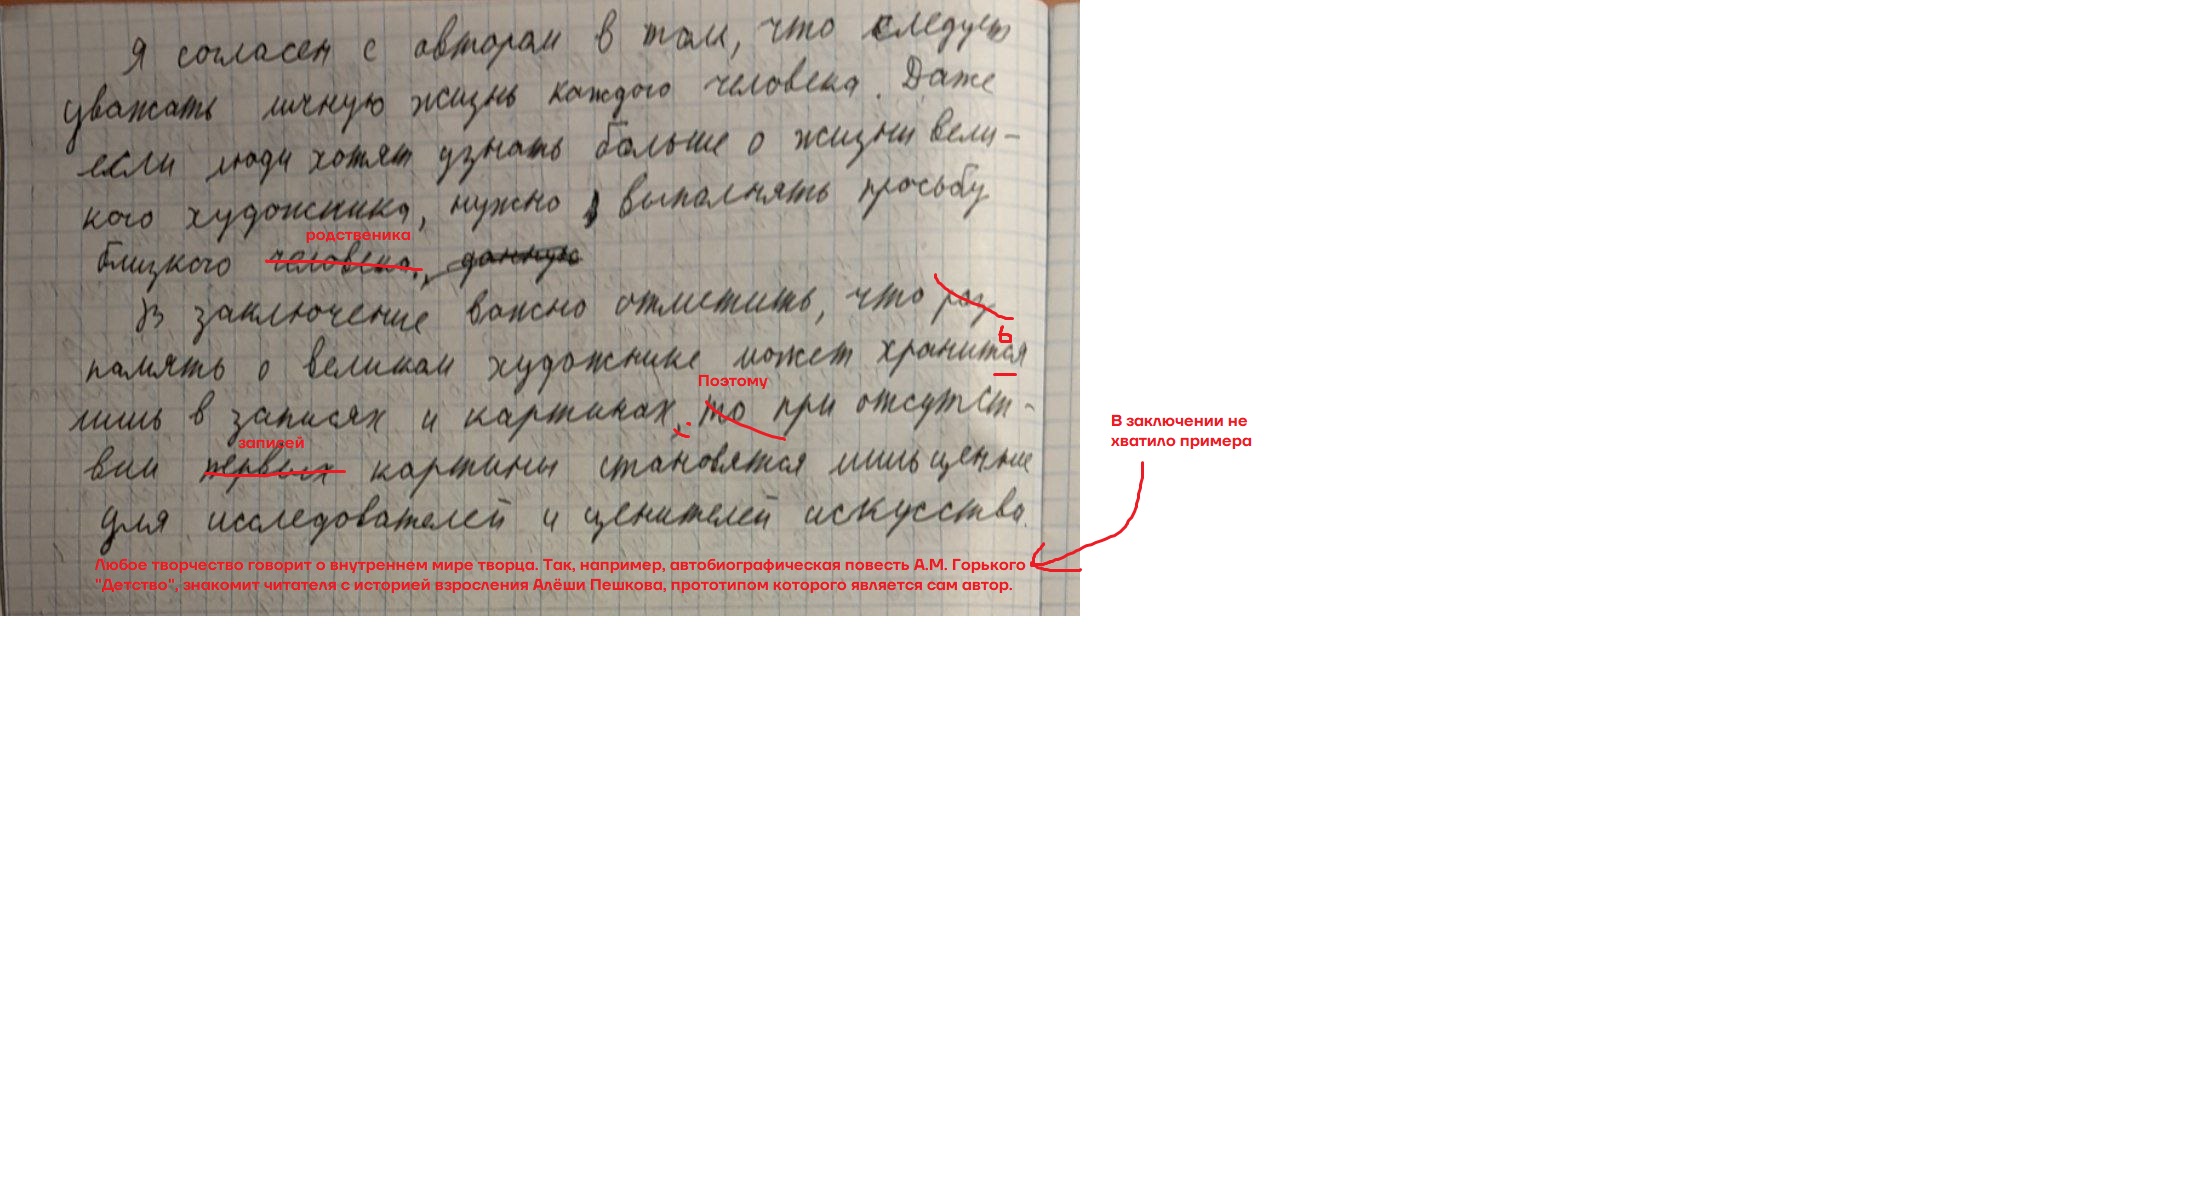 Я согласен с автором в том, что следует
уважать личную жизнь каждого человека. Даже
если люди хотят узнать больше о жизни вели-
кого художника, нужно выполнять просьбу
родственика
близкого человека, данную
В заключение важно отметить, что раз
ь
память о великом художнике может хранится
Поэтому
лишь в записях и картинах, то при отсутст-
записей
вии первых картины становятся лишь ценные
для исследователей и ценителей искусства.
Любое творчество говорит о внутреннем мире творца. Так, например, автобиографическая повесть А.М. Горького
"Детство", знакомит читателя с историей взросления Алёши Пешкова, прототипом которого является сам автор.
В заключении не
хватило примера